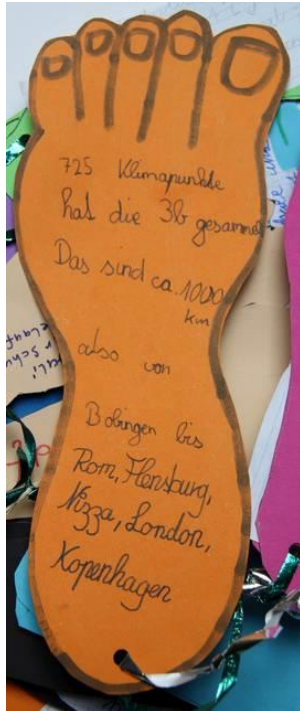 725 Klimapunkte
hat die 3b gesammelt
Das sind ca. 1000
km
also von
Bobingen bis
Rom, Flensburg,
Nizza, London,
Kopenhagen